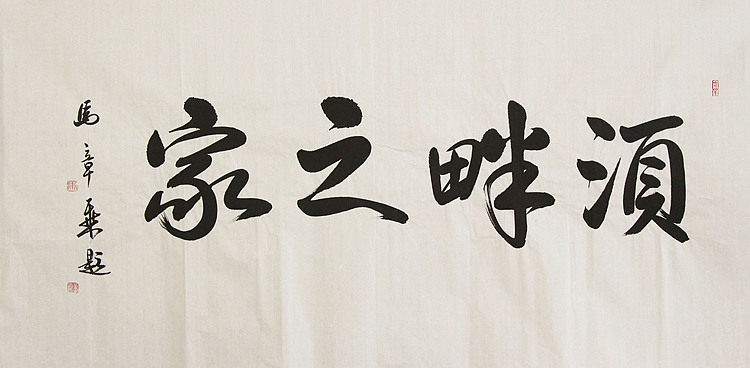 湏畔之家
馬章乘題